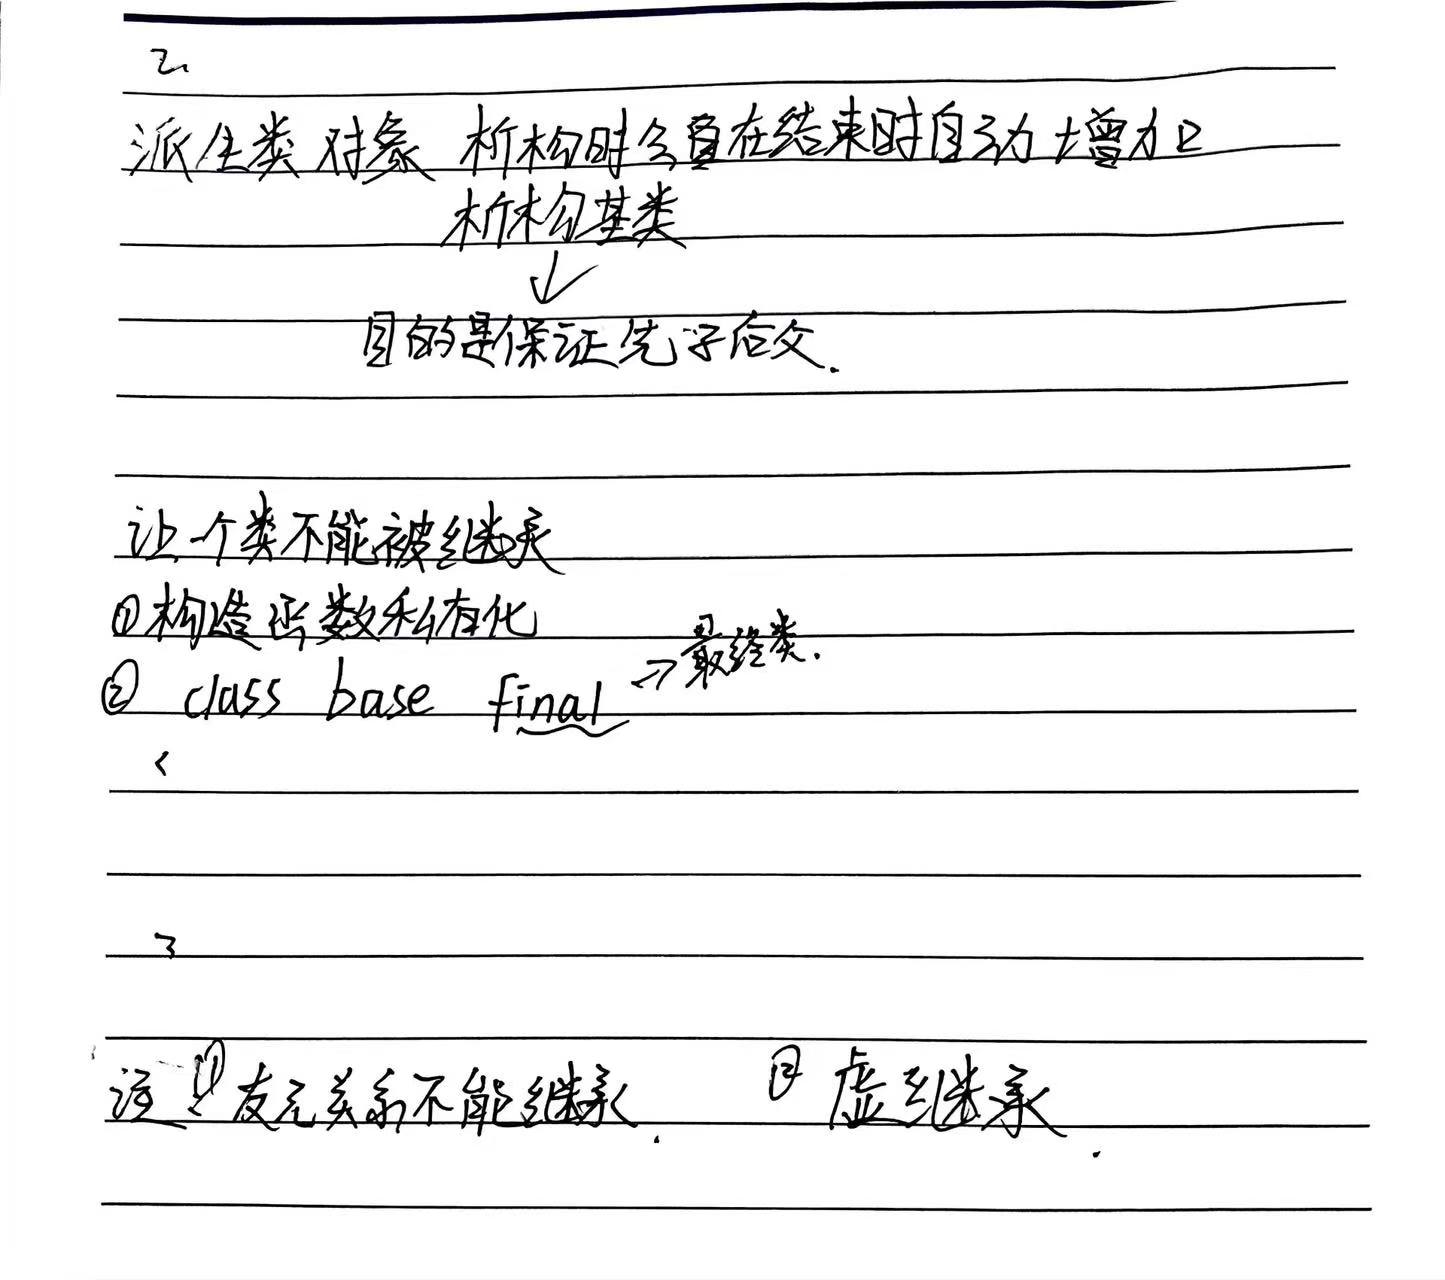 2.
派生类对象 析构时会自在结束时自动增加
析构基类
↓
目的是保证先子后父.
让一个类不能被继承
①构造函数私有化
② class base final → 最终类.
{
}
注 ① 友元关系不能继承. ② 虚继承.